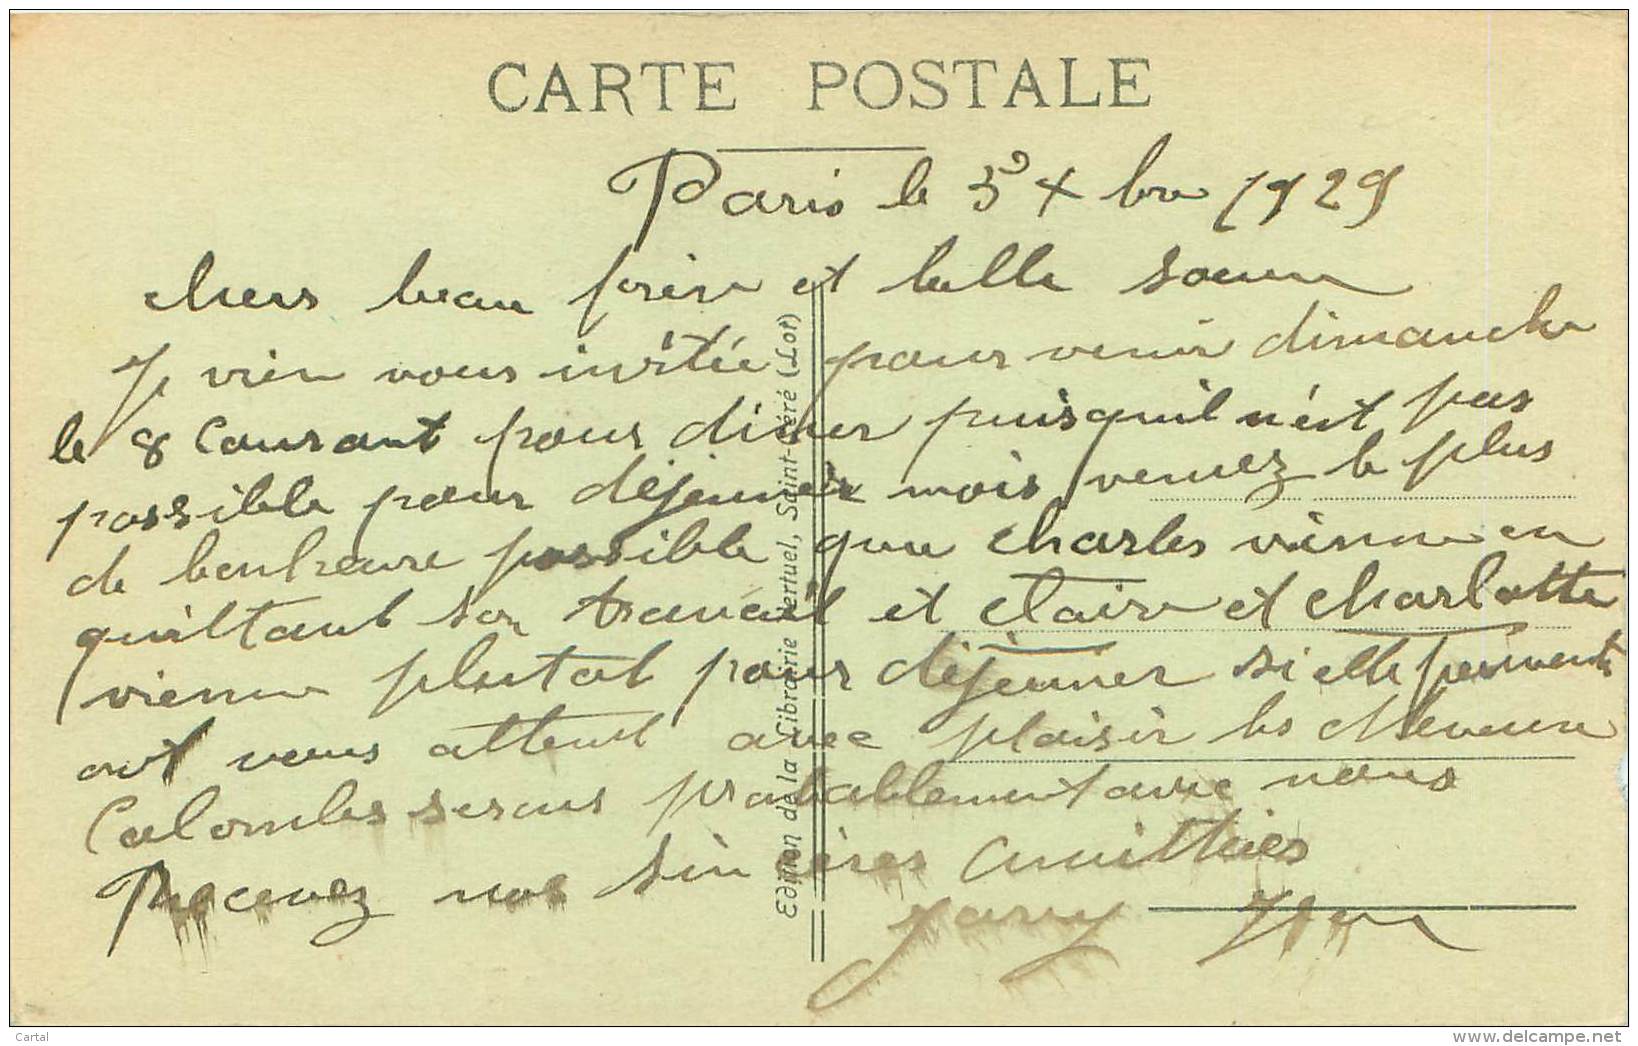 CARTE POSTALE
Paris le 5 Xbre 1929
chers beau frère et belle soeur
Je vien vous invitée pour venir dimanche
le 8 Courant pour diner puisquil n'est pas
possible pour déjeuner mois venez le plus
de bonheure possible que Charles vienne en
quiltant son travail et Claire et Charlotte
vienne plutot pour déjeuner si elle peuvent
ont vous attent avec plaisir les
Colombes serons probablement avec nous
Recevez nos sincères amithiées
Edition de la Librairie Vertuel, Saint-Céré (Lot)
Cartal
www.delcampe.net